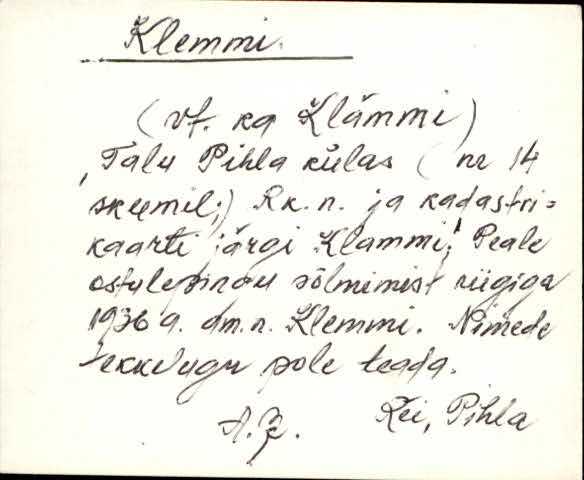 Klemmi.
(vt. ka Klämmi)
Talu Pihla külas (nr 14
skeemil;) Rk. n. ja kadastri=
kaarti järgi Klammi; Peale
ostulepingu sõlmimist riigiga
1936 a. am. n. Klemmi. Nimede
tekkelugu pole teada.
Rei, Pihla